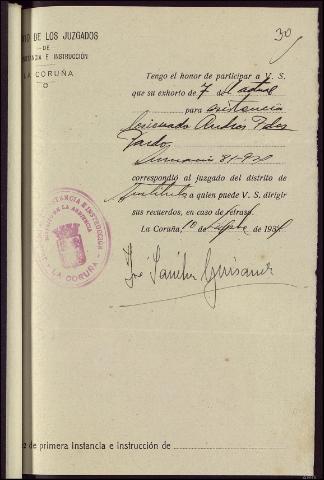 30
IO DE LOS JUZGADOS
DE
INSTANCIA E INSTRUCCIÓN
LA CORUÑA
Tengo el honor de participar a V. S.
que su exhorto de 7 del actual
para asistencia
lesionado
Pardo
Sumario
correspondió al juzgado del distrito de
Instituto a quien puede V. S. dirigir
sus recuerdos, en caso de retraso.
La Coruña, 10 de 193
José Sánchez Guisande
INSTANCIA E INSTRUCCION
LA CORUÑA
de primera Instancia e Instrucción de